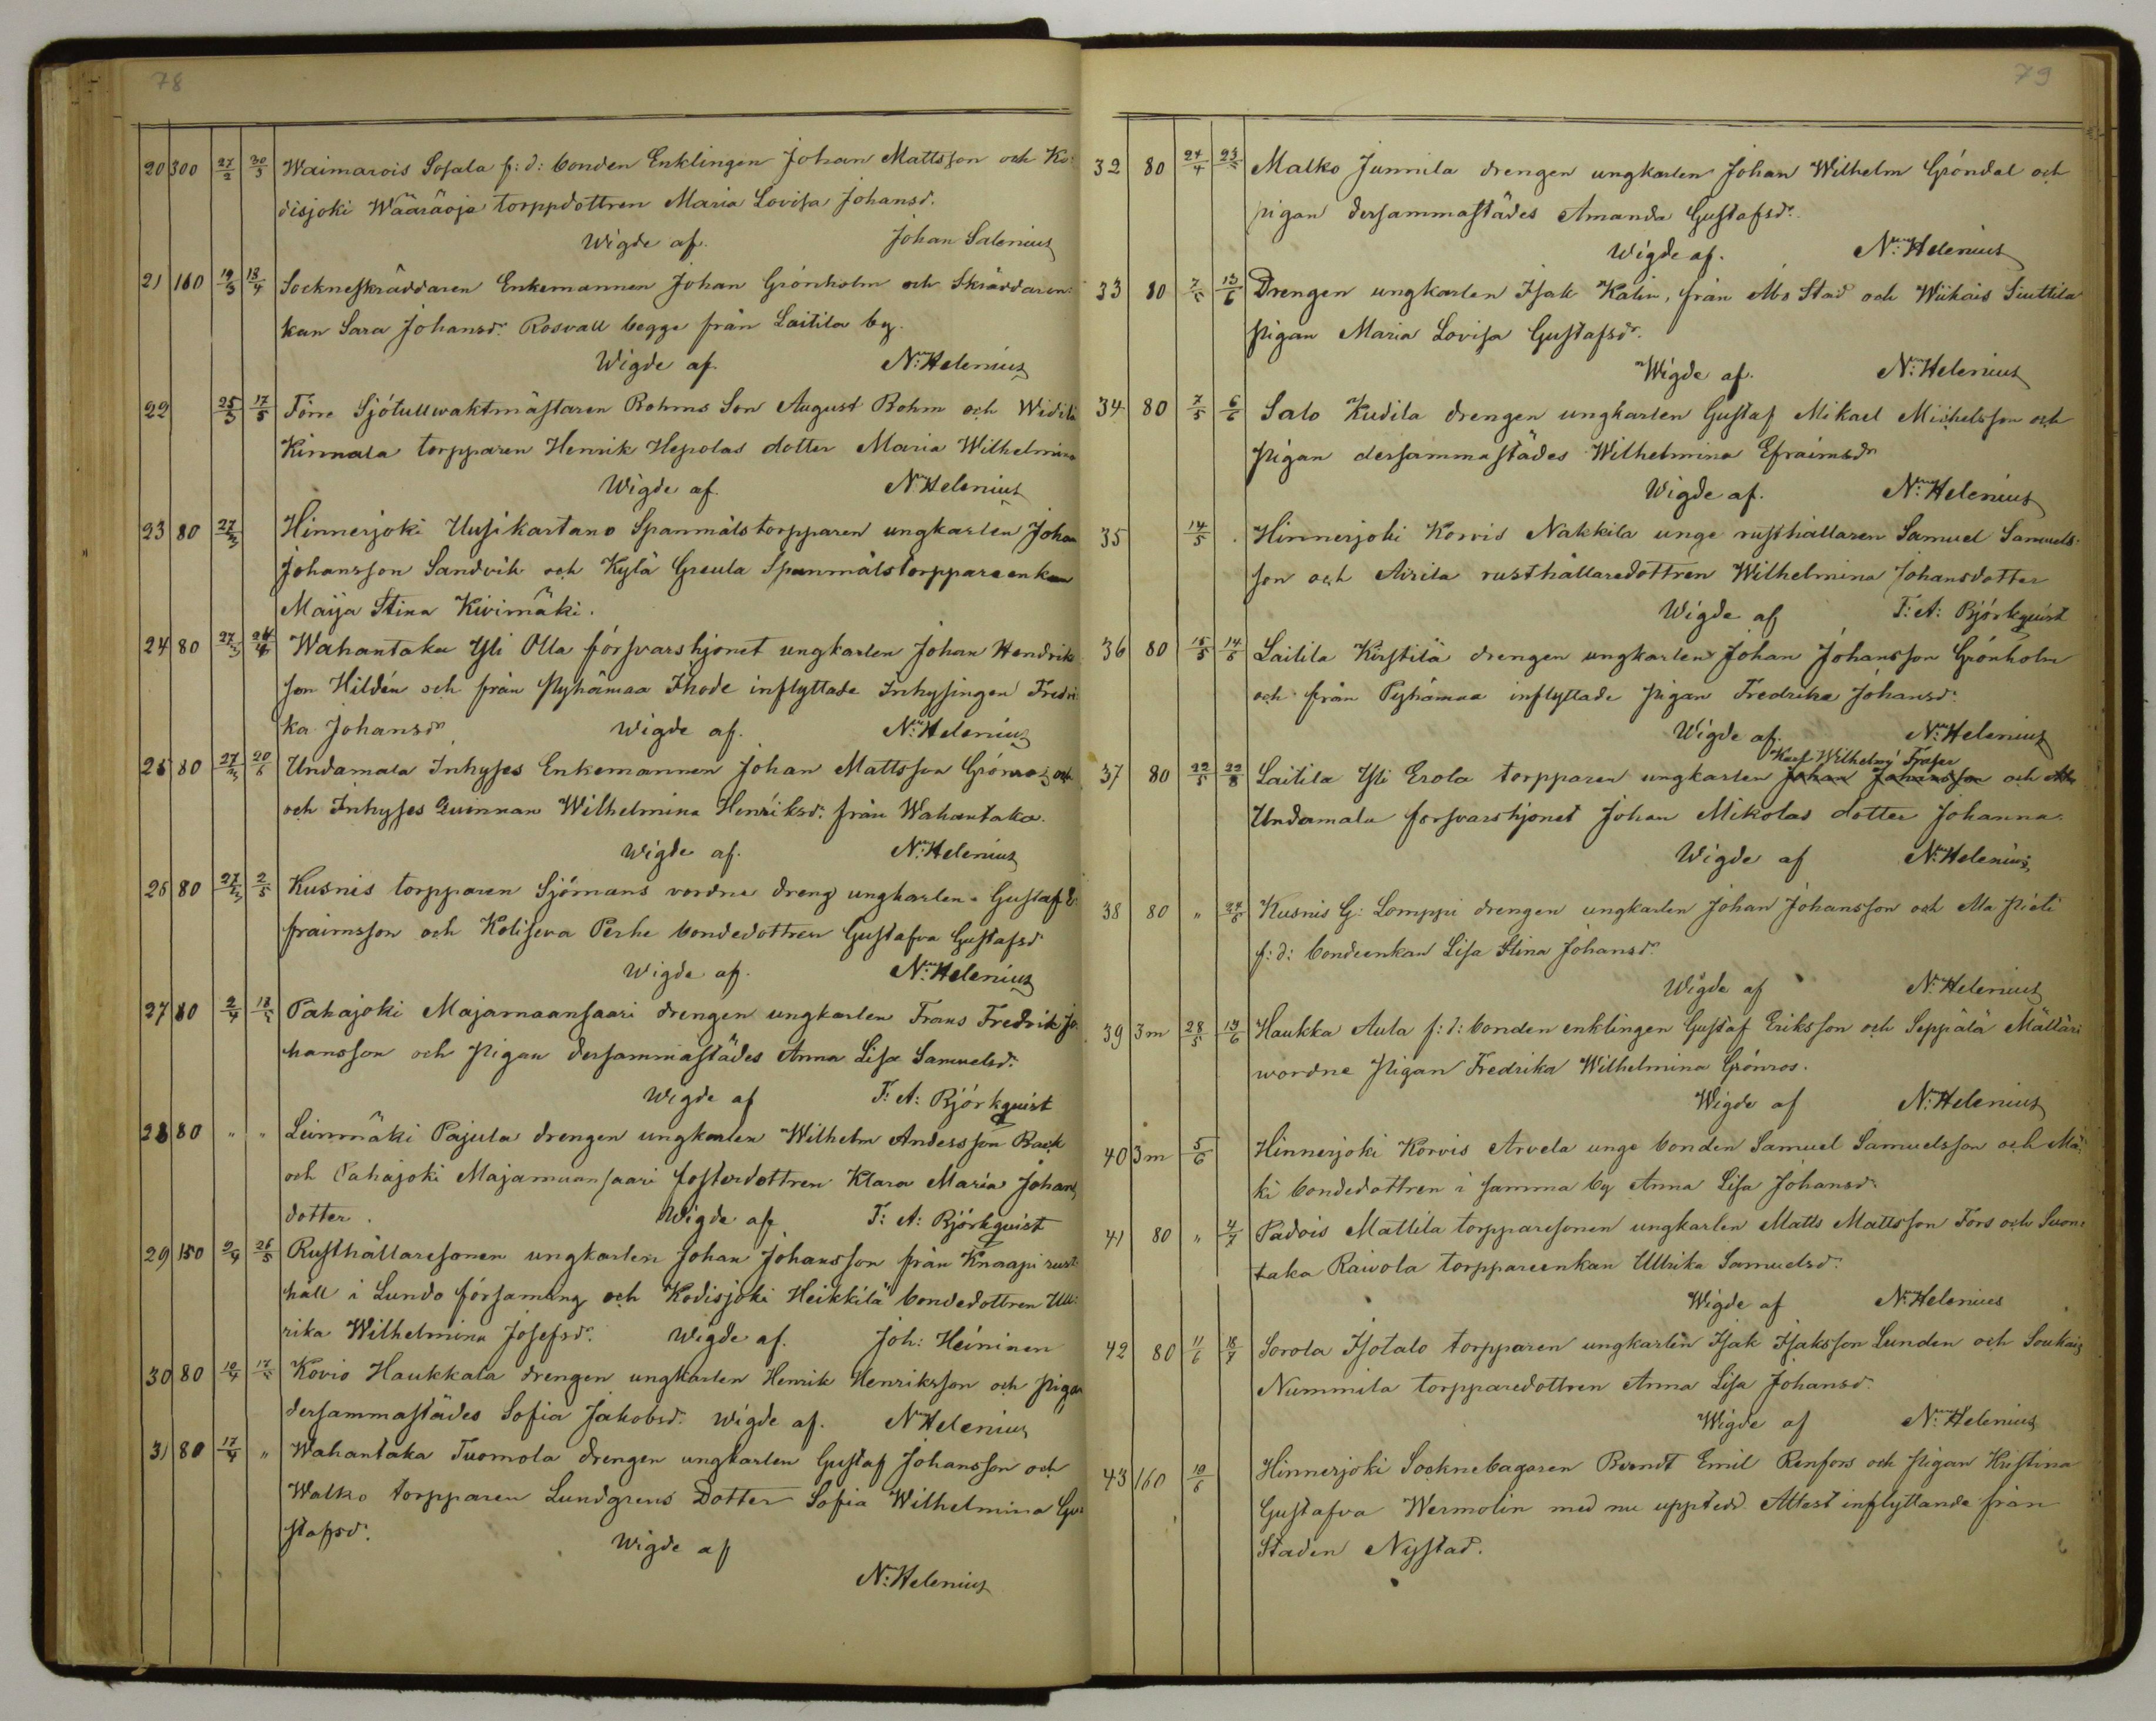 78
20 300 27/2 30/3 Waimarois Sofala f: d: bonden Enklingen Johan Mattsson och Ko-
disjoki Wääräoja torppdottren Maria Lovisa Johansd.
Wigde af. Johan Salenius
21 160 19/3 13/4 Sockneskräddaren Enkemannen Johan Grönholm och Skräddaren-
kan Sara Johansdr. Rosvall begge från Laitila by.
Wigde af. N: Helenius
22 25/3 17/5 Förre Sjötullwaktmästaren Bohms Son August Bohm och Widilä
Kinnala torpparen Henrik Hepolas dotter Maria Wilhelmina
Wigde af. N: Helenius
23 80 27/3 Hinnerjoki Uusikartano Spanmålstorpparen ungkarlen Johan
Johansson Sandvik och Kylä Greula Spanmålstorppareenkan
Maija Stina Kivimäki.
24 80 27/3 24/4 Wahantaka Yli Olla försvarshjonet ungkarlen Johan Hendrik
son Hildén och från Pyhämaa Ihode inflyttade Inhysingen Fredri
ka Johansdr Wigde af. N: Helenius
25 80 27/3 20/6 Undamala Inhyses Enkemannen Johan Mattsson Grönros och
och Inhyses Quinnan Wilhelmina Henriksdr. från Wahantaka.
Wigde af. N: Helenius
26 80 27/3 2/5 Kusnis torpparen Sjömans vordne dreng ungkarlen Gustaf E-
fraimsson och Koliseva Perhe bondedottren Gustafva Gustafsd
Wigde af. N: Helenius
27 80 2/4 18/5 Pahajoki Majamaansaari drengen ungkarlen Frans Fredrik Jo-
hansson och Pigan dersammastädes Anna Lisa Samuelsd:
Wigde af F: A: Björkquist
28 80 " " Leinmäki Pajula drengen ungkarlen Wilhelm Andersson Back
och Pahajoki Majamaansaari fosterdottren Klara Maria Johans
dotter. Wigde af F: A: Björkquist
29 150 2/4 26/5 Rusthållaresonen ungkarlen Johan Johansson från Knaapi rust-
håll i Lundo församling och Kodisjoki Heikkilä bondedottren Ull-
rika Wilhelmina Josefsdr. Wigde af. Joh: Heininen
30 80 10/4 17/5 Kovio Haukkala drengen ungkarlen Henrik Henriksson och Pigan
dersammastädes Sofia Jakobsd. Wigde af. N Helenius
31 80 17/4 " Wahantaka Tuomola drengen ungkarlen Gustaf Johansson och
Walko torpparen Lundgrens Dotter Sofia Wilhelmina Gu-
stafsdr. Wigde af
N: Helenius
79
32 80 24/4 23/5 Malko Junnila drengen ungkarlen Johan Wilhelm Gröndal och
pigan dersammastädes Amanda Gustafsdr.
Wigde af. N: Helenius
33 80 7/5 13/6 Drengen ungkarlen Isak Kalin, från Åbo Stad och Wiikais Siuttila
Pigan Maria Lovisa Gustafsdr.
Wigde af. N: Helenius
34 80 7/5 6/6 Salo Kudila drengen ungkarlen Gustaf Mikael Michelsson och
Pigan dersammastädes Wilhelmina Efraimsdr
Wigde af. N: Helenius
35 14/5 Hinnerjoki Korvis Nakkila unge rusthållaren Samuel Samuels-
son och Airila rusthållaredottren Wilhelmina Johansdotter
Wigde af F: A: Björkquist
36 80 15/5 14/6 Laitila Kirstilä drengen ungkarlen Johan Johansson Grönholm
och från Pyhämaa inflyttade Pigan Fredrika Johansd.
Wigde af. N: Helenius
Karl Wilhelm Fraser
37 80 22/5 22/8 Laitila Yli Erola torpparen ungkarlen Johan Johansson och
Undamala forsvarshjonet Johan Mikolas dotter Johanna.
Wigde af N: Helenius
38 80 " 24/6 Kusnis G: Lomppi drengen ungkarlen Johan Johansson och Ala Pieti
f: d: bondeenkan Lisa Stina Johansd.
Wigde af N: Helenius
39 3m 28/5 19/6 Haukka Aula f: d: bonden enklingen Gustaf Eriksson och Seppälä Mälläri
wordne Pigan Fredrika Wilhelmina Grönros.
Wigde af N: Helenius
40 3m 5/6 Hinnerjoki Korvis Arvela unge bonden Samuel Samuelsson och Mä-
ki bondedottren i samma by Anna Lisa Johansd.
41 80 " 4/7 Padois Mattila torpparesonen ungkarlen Matts Mattsson Fors och Suon-
taka Raivola torppareenkan Ullrika Samuelsd.
Wigde af N: Helenius
42 80 11/6 18/7 Sorola Isotalo torpparen ungkarlen Isak Isaksson Lunden och Soukais
Nummila torpparedottren Anna Lisa Johansd.
Wigde af N: Helenius
43 160 10/6 Hinnerjoki Socknebagaren Berndt Emil Renfors och Pigan Kristina
Gustafva Wermolin med nu uppted. Attest inflyttande från
Staden Nystad.